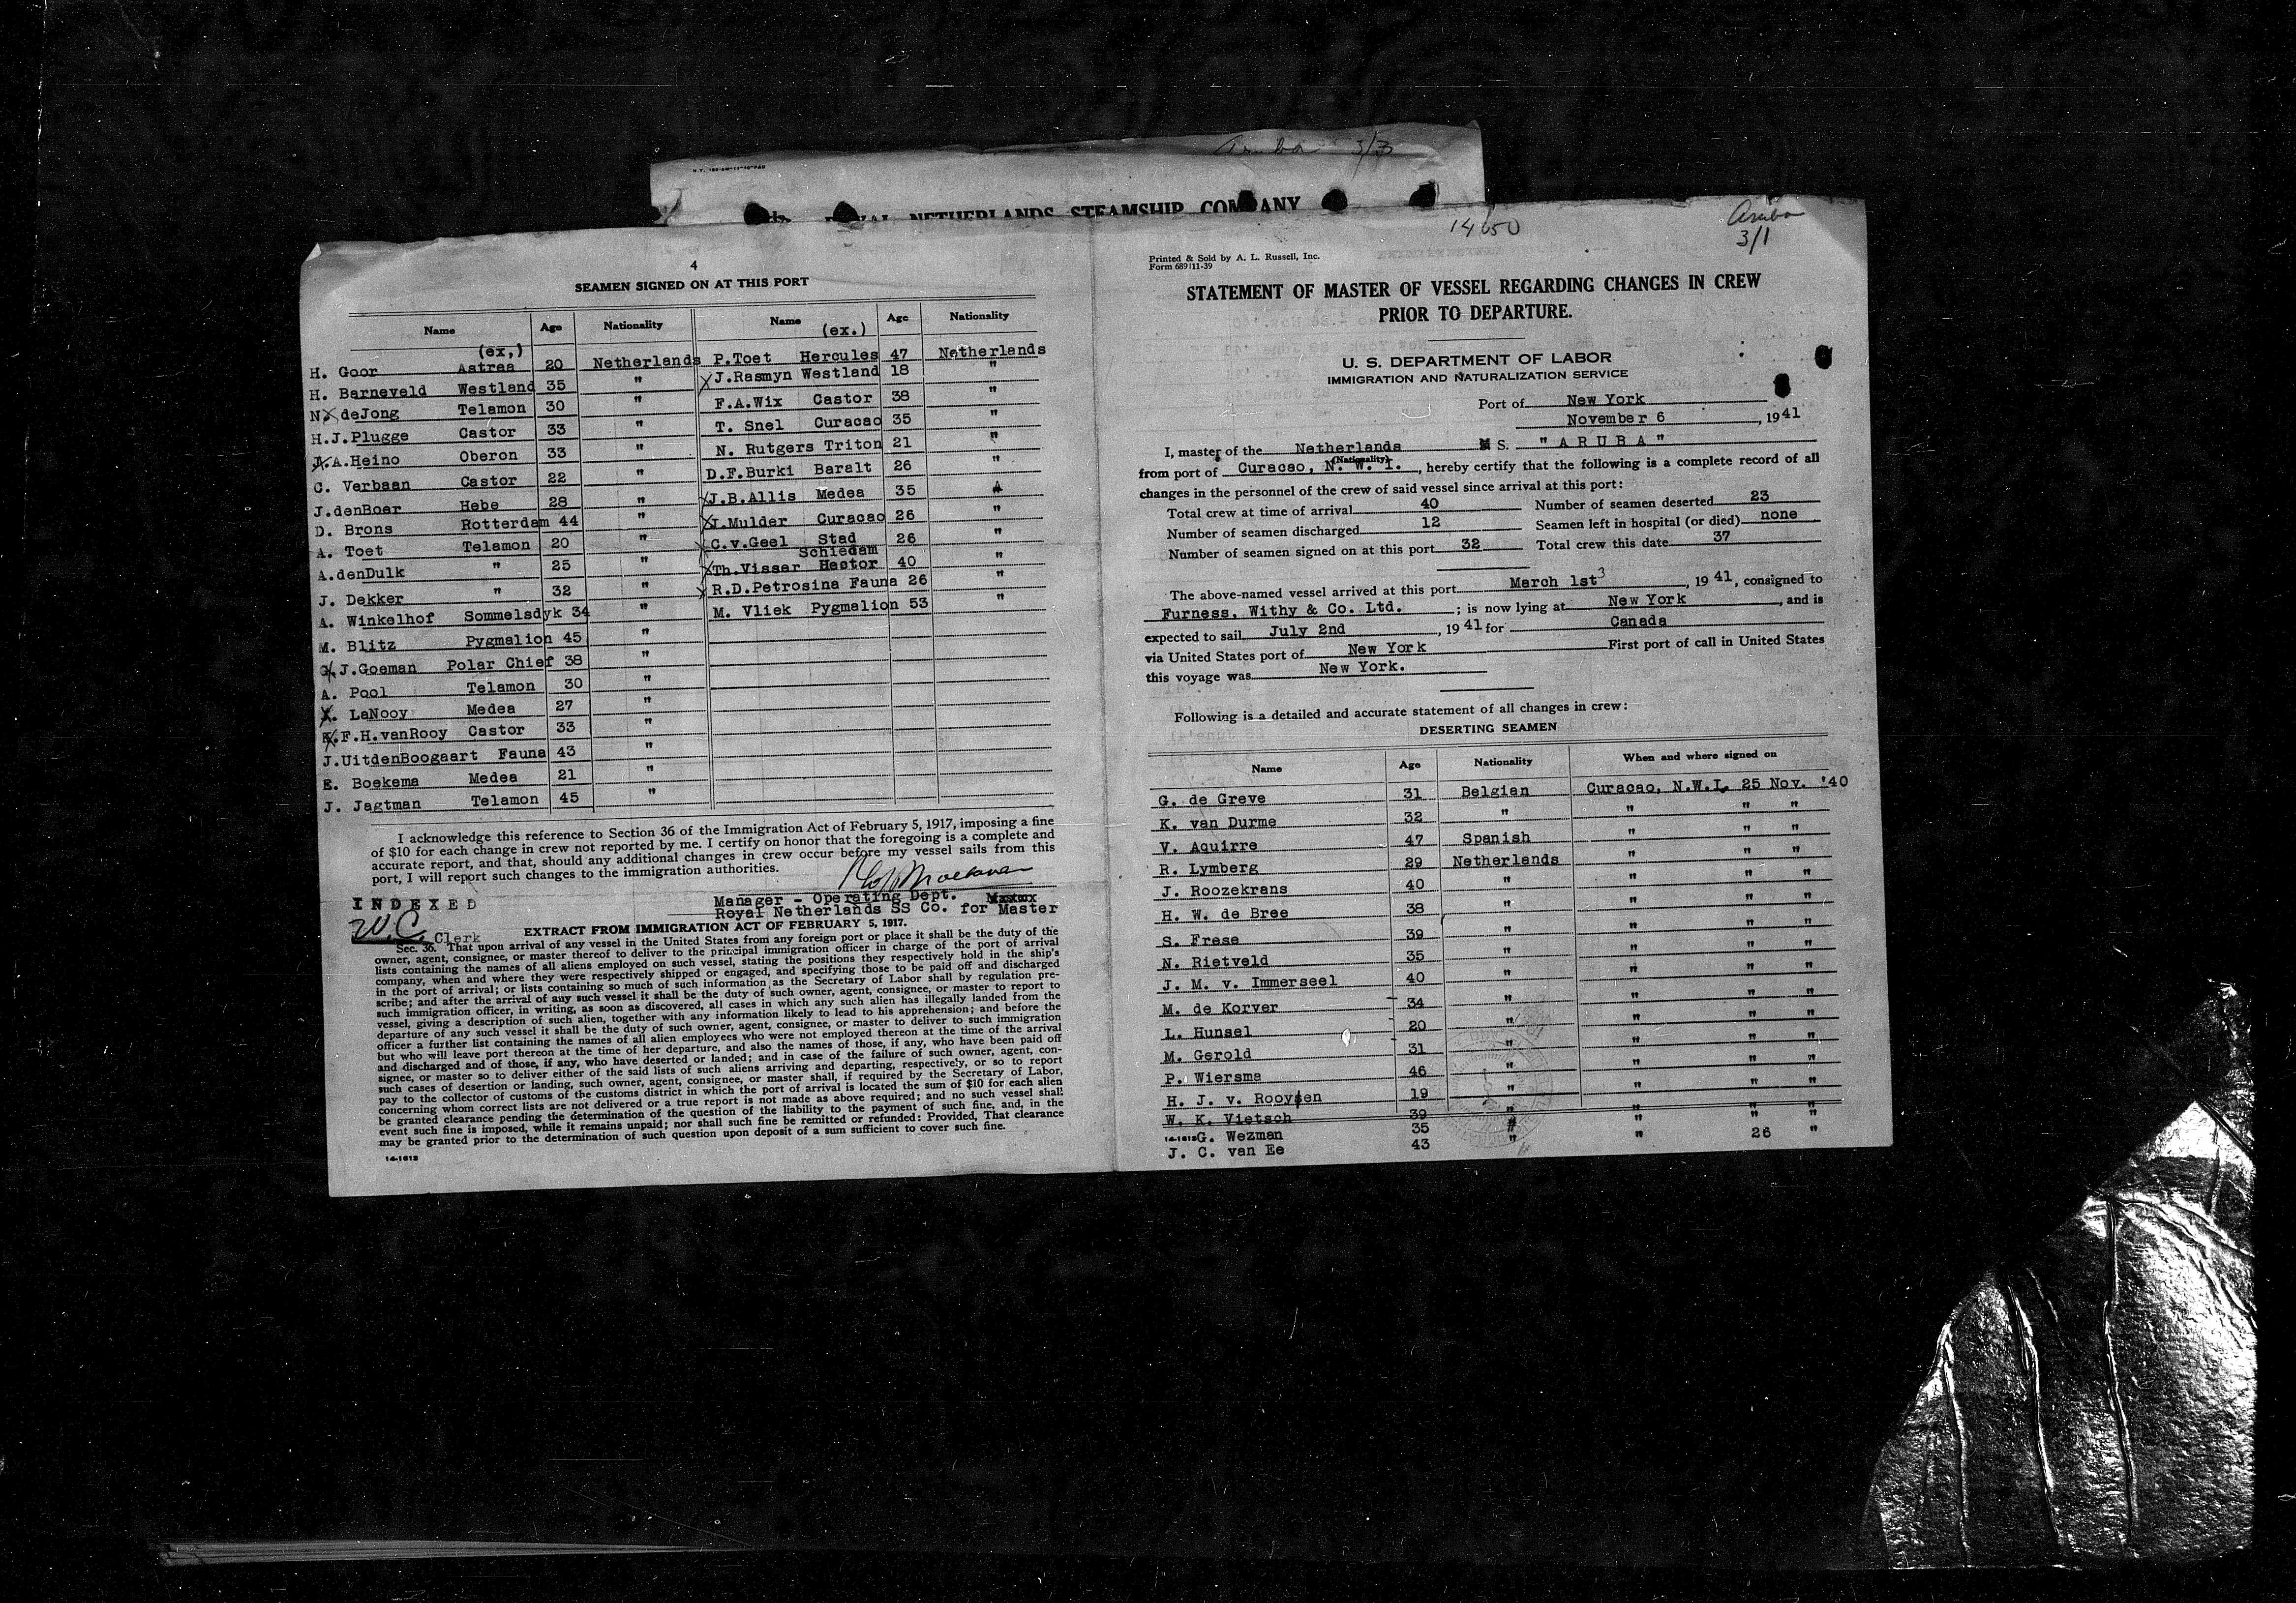 Aruba 3/3
ROYAL NETHERLANDS STEAMSHIP COMPANY
4
SEAMEN SIGNED ON AT THIS PORT
Name Age Nationality Name Age Nationality
(ex,) (ex.)
H. Goor Astrea 20 Netherlands P.Toet Hercules 47 Netherlands
H. Barneveld Westland 35 " J.Rasmyn Westland 18 "
N. deJong Telamon 30 " F.A.Wix Castor 38 "
H.J.Plugge Castor 33 " T. Snel Curacao 35 "
A.Heino Oberon 33 " N. Rutgers Triton 21 "
C. Verbaan Castor 22 " D.F.Burki Baralt 26 "
J.denBoer Hebe 28 " J.B.Allis Medea 35 "
D. Brons Rotterdam 44 " J.Mulder Curacao 26 "
A. Toet Telamon 20 " C.v.Geel Stad Schiedam 26 "
A.denDulk " 25 " Th.Visser Hector 40 "
J. Dekker " 32 " R.D.Petrosina Fauna 26 "
A. Winkelhof Sommelsdyk 34 " M. Vliek Pygmalion 53 "
M. Blitz Pygmalion 45 "
G.J.Goeman Polar Chief 38 "
A. Pool Telamon 30 "
LaNooy Medea 27 "
F.H.vanRooy Castor 33 "
J.UitdenBoogaart Fauna 43 "
E. Boekema Medea 21 "
J. Jagtman Telamon 45 "
I acknowledge this reference to Section 36 of the Immigration Act of February 5, 1917, imposing a fine
of $10 for each change in crew not reported by me. I certify on honor that the foregoing is a complete and
accurate report, and that, should any additional changes in crew occur before my vessel sails from this
port, I will report such changes to the immigration authorities.
Manager - Operating Dept.
Royal Netherlands SS Co. for Master
INDEXED
W.C. Clerk
EXTRACT FROM IMMIGRATION ACT OF FEBRUARY 5, 1917.
Sec. 36. That upon arrival of any vessel in the United States from any foreign port or place it shall be the duty of the
owner, agent, consignee, or master thereof to deliver to the principal immigration officer in charge of the port of arrival
lists containing the names of all aliens employed on such vessel, stating the positions they respectively hold in the ship's
company, when and where they were respectively shipped or engaged, and specifying those to be paid off and discharged
in the port of arrival; or lists containing so much of such information as the Secretary of Labor shall by regulation pre-
scribe; and after the arrival of any such vessel it shall be the duty of such owner, agent, consignee, or master to report to
such immigration officer, in writing, as soon as discovered, all cases in which any such alien has illegally landed from the
vessel, giving a description of such alien, together with any information likely to lead to his apprehension; and before the
departure of any such vessel it shall be the duty of such owner, agent, consignee, or master to deliver to such immigration
officer a further list containing the names of all alien employees who were not employed thereon at the time of the arrival
but who will leave port thereon at the time of her departure, and also the names of those, if any, who have been paid off
and discharged and of those, if any, who have deserted or landed; and in case of the failure of such owner, agent, con-
signee, or master so to deliver either of the said lists of such aliens arriving and departing, respectively, or so to report
such cases of desertion or landing, such owner, agent, consignee, or master shall, if required by the Secretary of Labor,
pay to the collector of customs of the customs district in which the port of arrival is located the sum of $10 for each alien
concerning whom correct lists are not delivered or a true report is not made as above required; and no such vessel shall
be granted clearance pending the determination of the question of the liability to the payment of such fine, and, in the
event such fine is imposed, while it remains unpaid; nor shall such fine be remitted or refunded: Provided, That clearance
may be granted prior to the determination of such question upon deposit of a sum sufficient to cover such fine.
14-1613
14650
Aruba
3/1
Printed & Sold by A. L. Russell, Inc.
Form 689|11-39
STATEMENT OF MASTER OF VESSEL REGARDING CHANGES IN CREW
PRIOR TO DEPARTURE.
U. S. DEPARTMENT OF LABOR
IMMIGRATION AND NATURALIZATION SERVICE
Port of New York
November 6, 1941
I, master of the Netherlands S. "ARUBA"
(Nationality)
from port of Curacao, N. W. I., hereby certify that the following is a complete record of all
changes in the personnel of the crew of said vessel since arrival at this port:
Total crew at time of arrival 40 Number of seamen deserted 23
Number of seamen discharged 12 Seamen left in hospital (or died) none
Number of seamen signed on at this port 32 Total crew this date 37
The above-named vessel arrived at this port March 1st 3, 1941, consigned to
Furness, Withy & Co. Ltd. ; is now lying at New York, and is
expected to sail July 2nd, 1941 for Canada
via United States port of New York First port of call in United States
this voyage was New York.
Following is a detailed and accurate statement of all changes in crew:
DESERTING SEAMEN
Name Age Nationality When and where signed on
G. de Greve 31 Belgian Curacao, N.W.I. 25 Nov. '40
K. van Durme 32 " " " "
V. Aquirre 47 Spanish " " "
R. Lymberg 29 Netherlands " " "
J. Roozekrans 40 " " " "
H. W. de Bree 38 " " " "
S. Frese 39 " " " "
N. Rietveld 35 " " " "
J. M. v. Immerseel 40 " " " "
M. de Korver 34 " " " "
L. Hunsel 20 " " " "
M. Gerold 31 " " " "
P. Wiersma 46 " " " "
H. J. v. Rooyen 19 " " " "
W. K. Vietsch 39 " " " "
14-1613 G. Wezman 35 " " " "
J. C. van Ee 43 " " 26 "